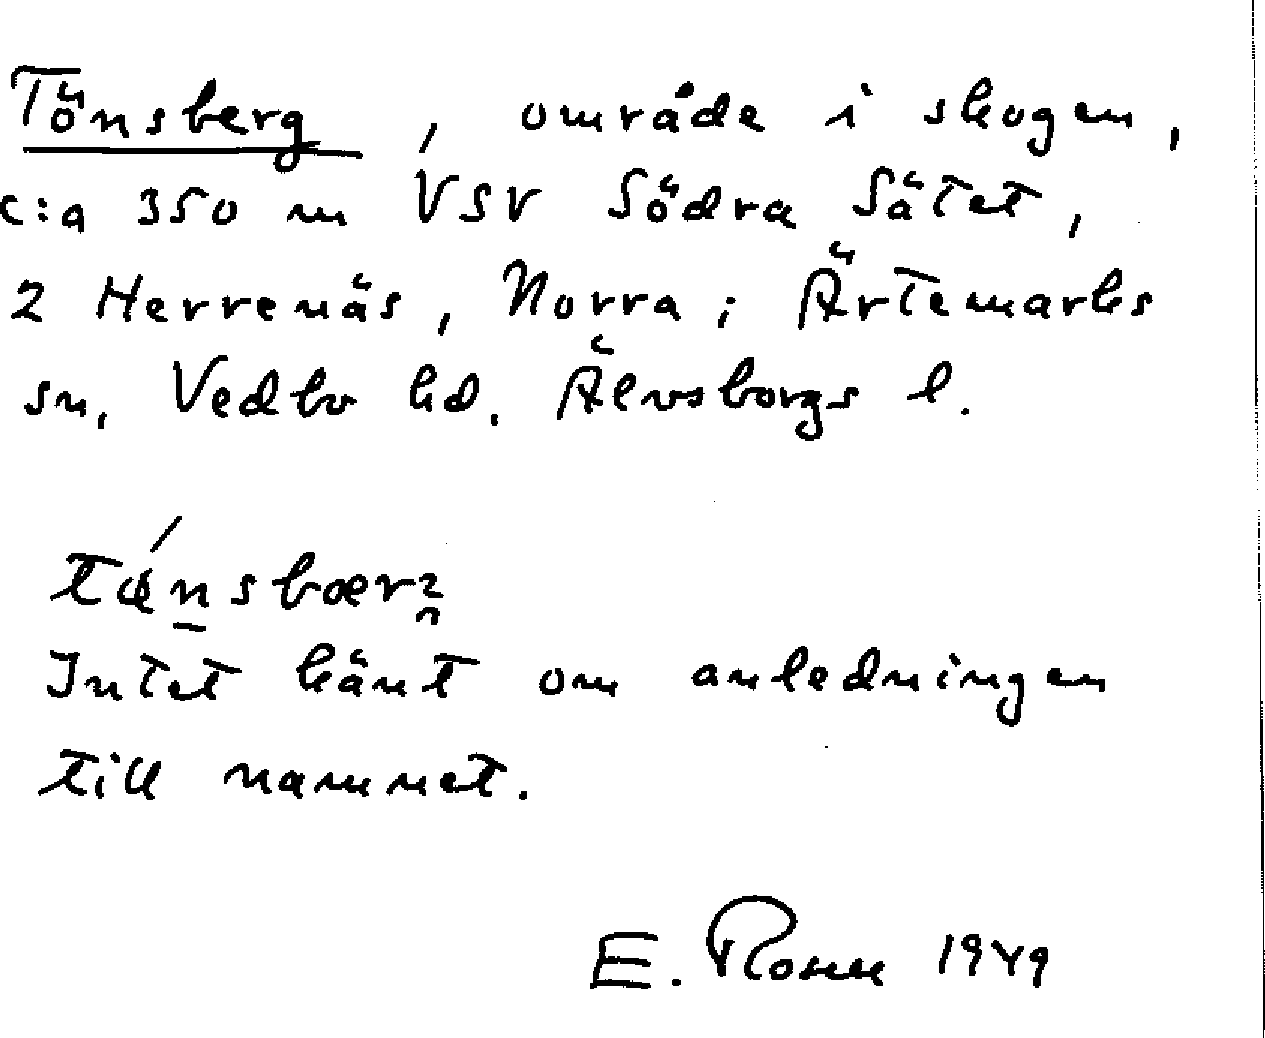 Tönsberg, område i skogen,
c:a 350 m VSV Södra Sätet,
2 Herrenäs, Norra; Ärtemarks
sn, Vedbo hd. Älvsborgs l.
Intet känt om anledningen
till namnet.
E. Rosell 1949